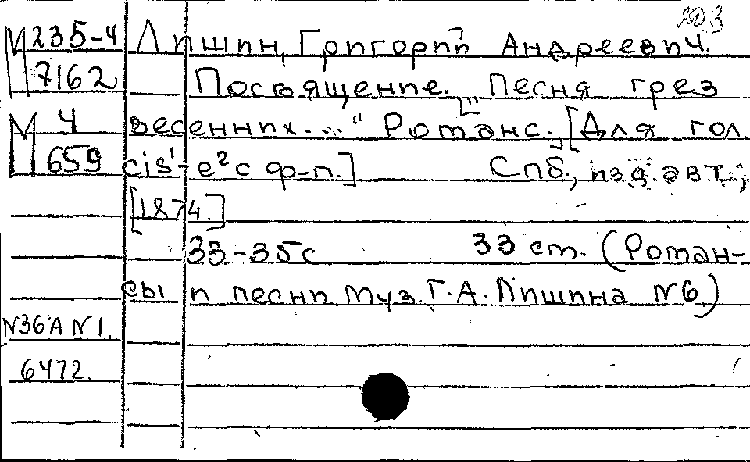 М 235-4 Лишин, Григорий Андреевич.
7162 Посвящение. ["Песня грез
М 4 весенних..." Романс.] [Для гол.
659 cis¹-e² с ф-п.] Спб., изд. авт.,
[1874]
33-35 с 33 см. (Роман-
сы и песни муз. Г.А. Лишина №6.)
№36А №1.
6472.